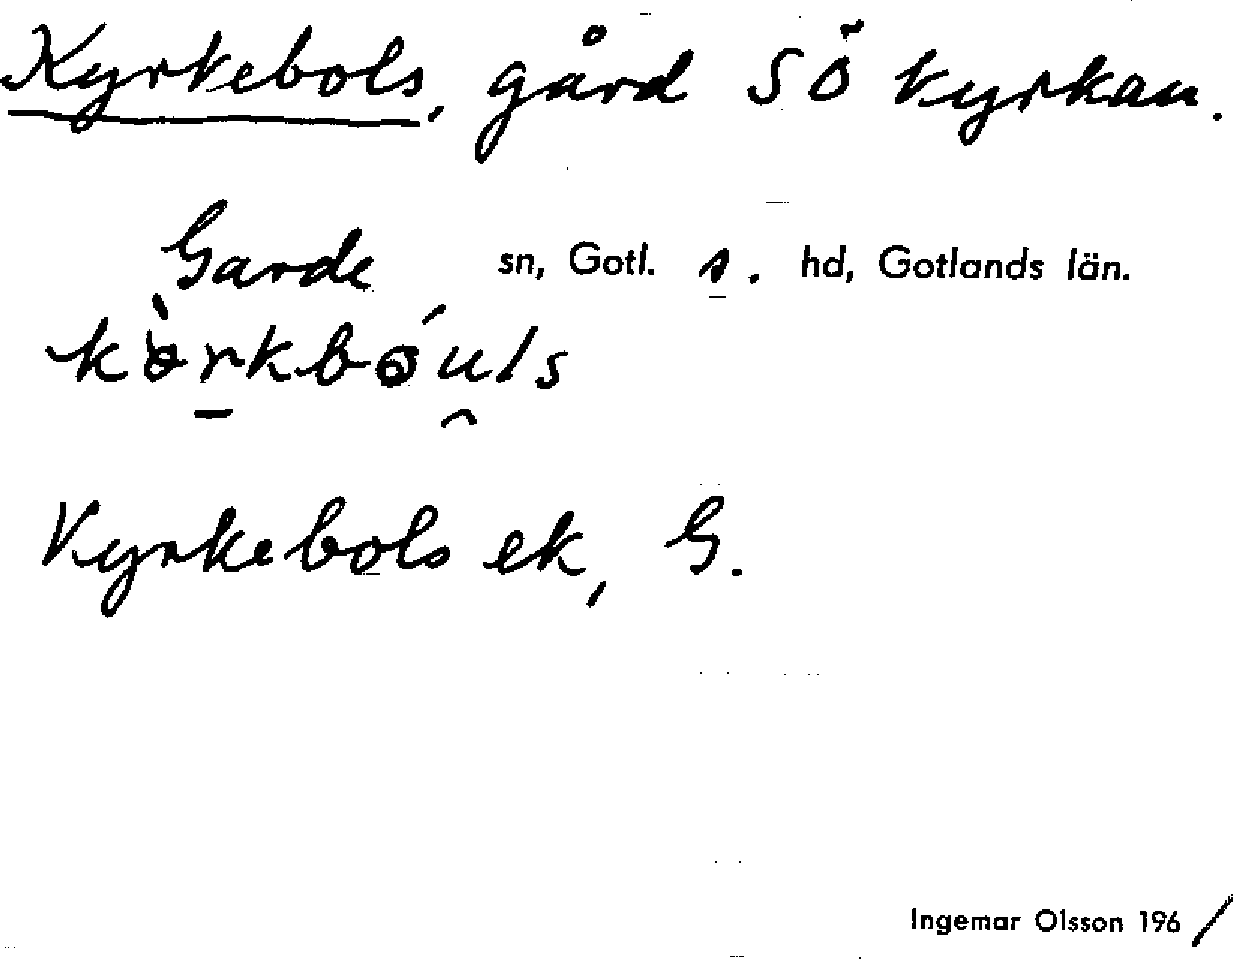 Kyrkebols, gård SÖ kyrkan.
Garde sn, Gotl. s. hd, Gotlands län.
Kyrkebols ek, G.
Ingemar Olsson 1961